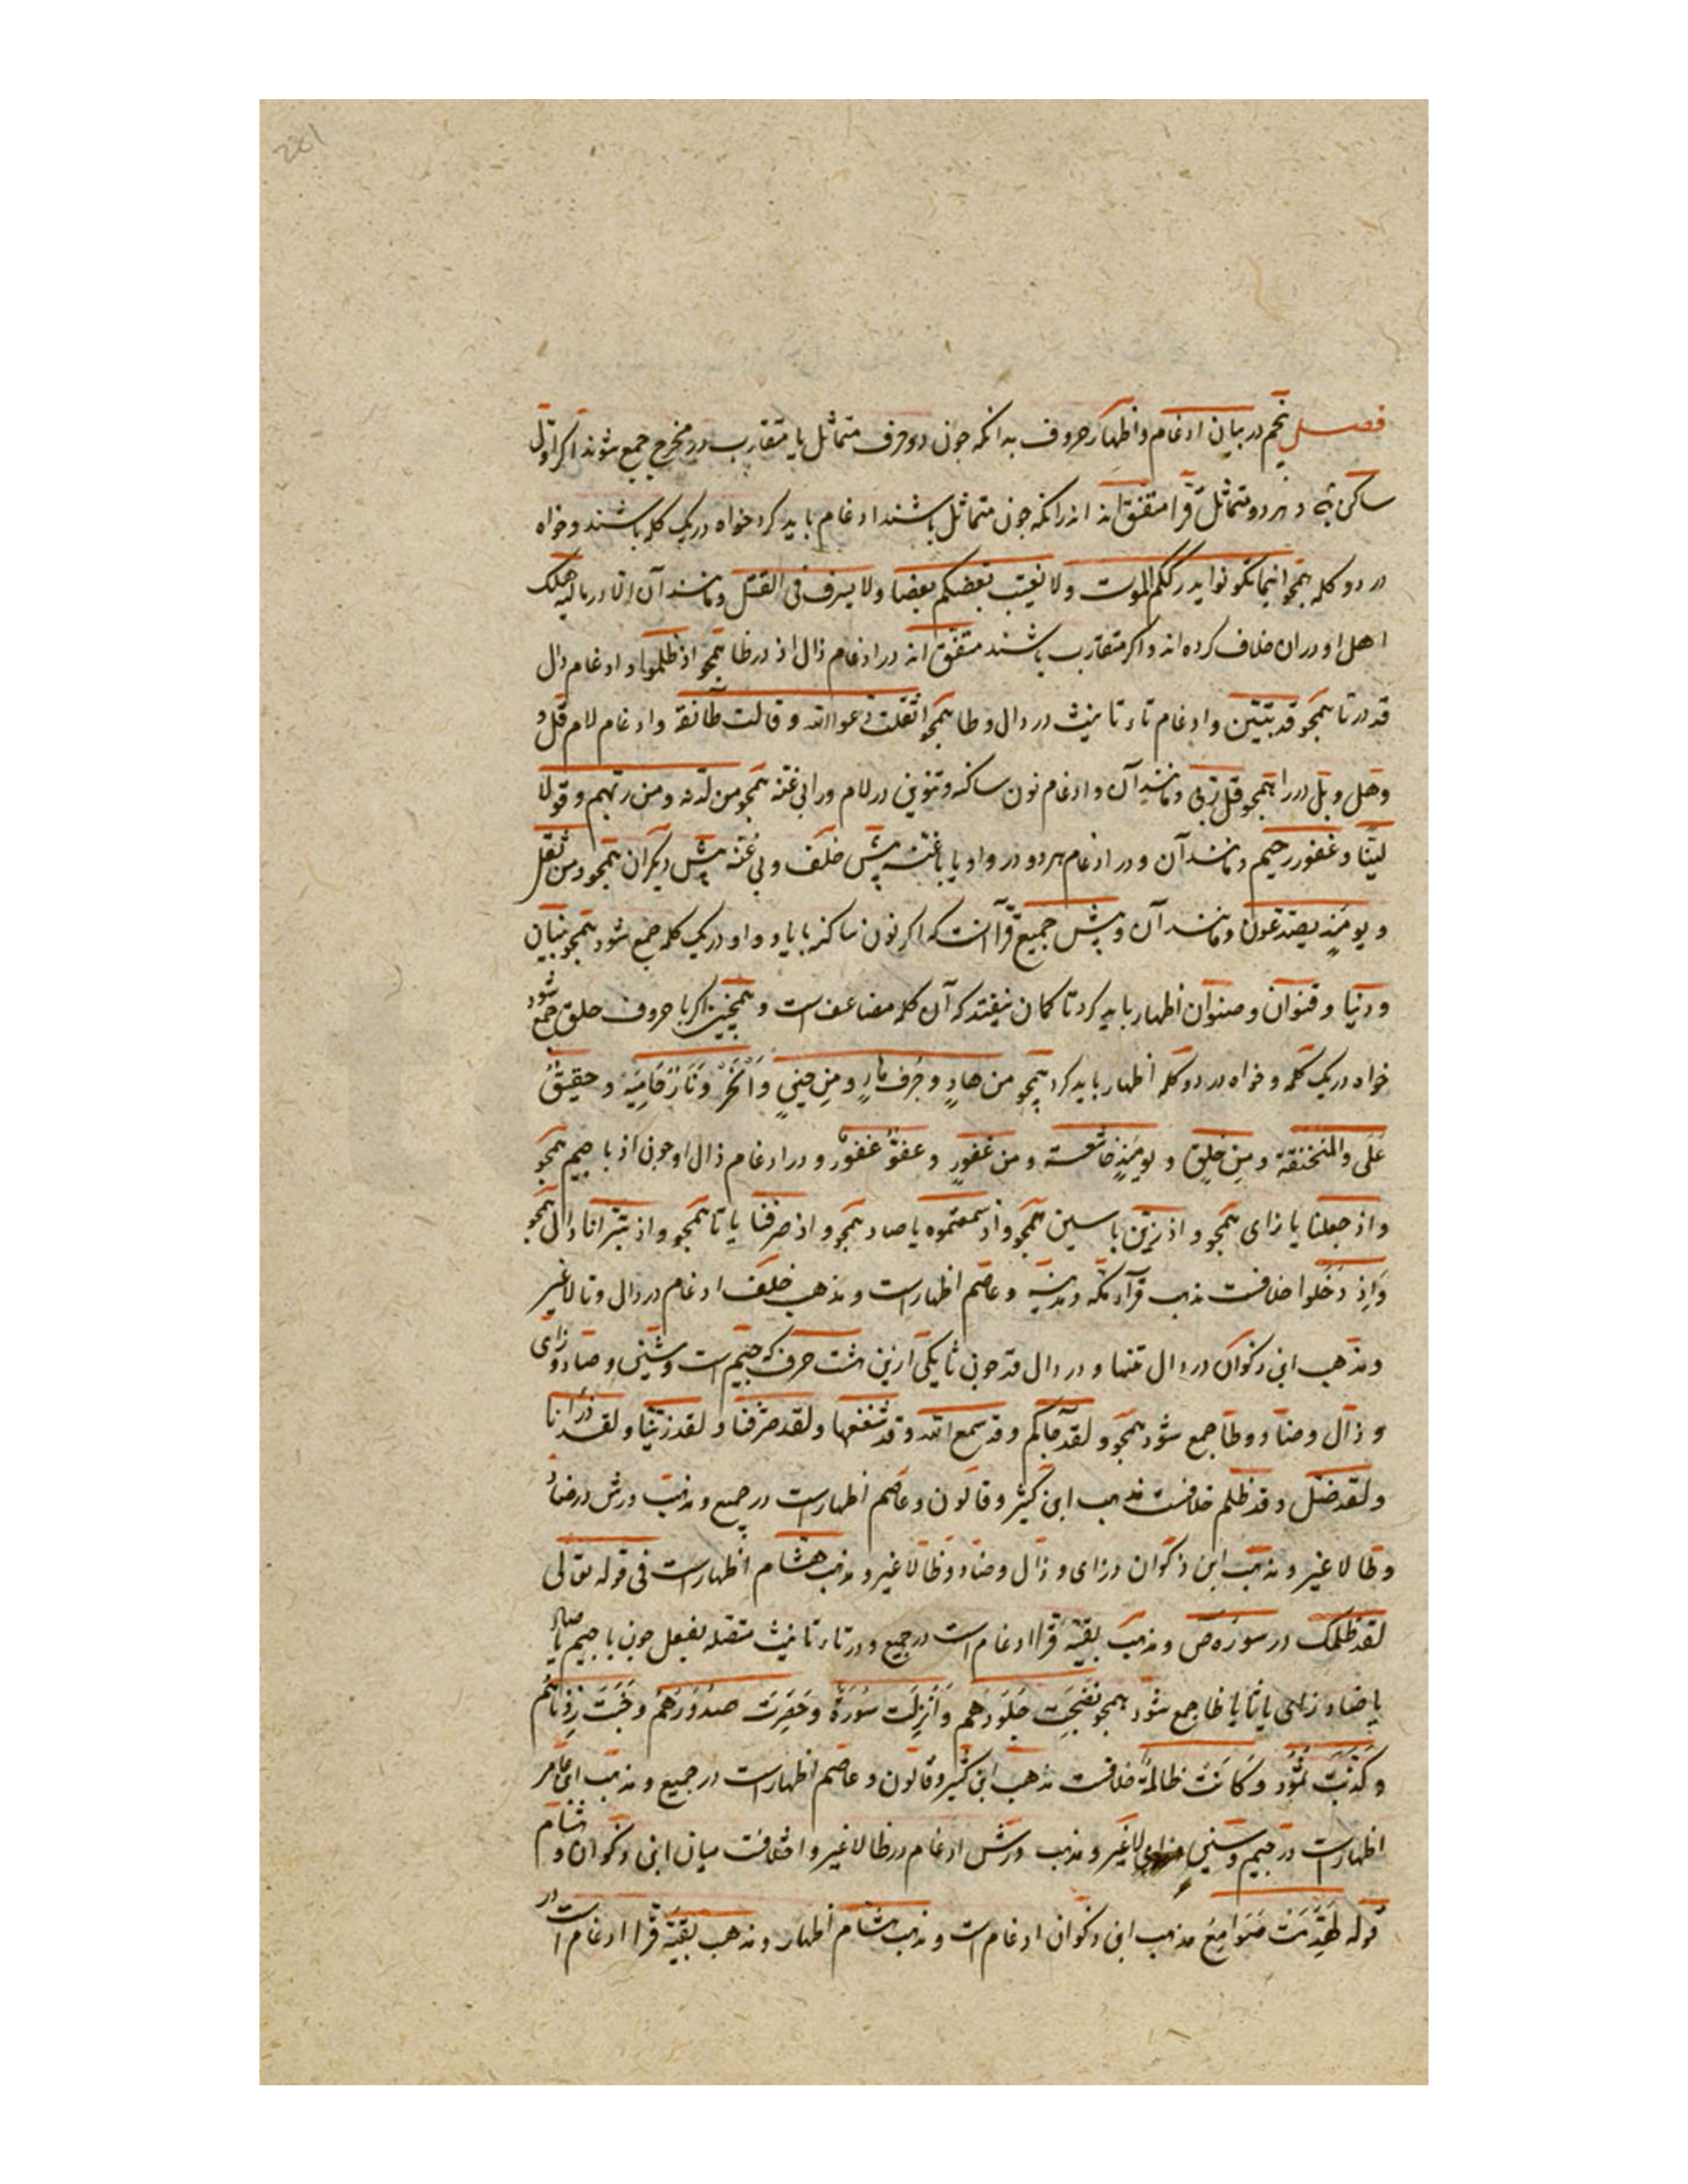 201
فصل پنجم در بیان ادغام و اظهار حروف بدانکه چون دو حرف متماثل یا متقارب در مخرج جمع شوند اکر اول
ساکن باشد هر دو متماثل قرا متفق اند اندرانکه چون متماثل باشند ادغام باید کرد خواه در یک کلمه باشند و خواه
در دو کلمه همچو اینما تکونوا یدرککم الموت ولا یغتب بعضکم بعضا ولا یسرف فی القتل و مانند آن الا در مالیه هلک
اهل او دران خلاف کرده اند و اکر متقارب باشند متفق اند در ادغام ذال اذ در ظا همچو اذ ظلموا و ادغام دال
قد در تا همچو قد تبین و ادغام تاء تانیث در دال و طا همچو اثقلت دعوا الله و قالت طائفة و ادغام لام قل و
و هل و بل در را همچو قل ربی و مانند آن و ادغام نون ساکنه و تنوین در لام و را بی غنه همچو من لدنه و من ربهم و قولا
لینا و غفور رحیم و مانند آن و در ادغام هر دو در واو یا با غنه پیش خلف و بی غنه پیش دیکران همچو و من یقل
و یومئذ یصدعون و مانند آن و پیش جمیع قرا آنست که اکر نون ساکنه با یا و واو در یک کلمه جمع شود همچو بنیان
و دنیا و قنوان و صنوان اظهار باید کرد تا کمان نیفتد که آن کلمه مضاعف است و همچنین اکر با حروف حلق جمع شود
خواه در یک کلمه و خواه در دو کلمه اظهار باید کرد همچو من هاد و جرف هار و من حین و انحر و نار حامیة و حقیق
علی و المنخنقة و من خلق و یومئذ خاشعة و من غفور و عفو غفور و در ادغام ذال او چون اذ با جیم همچو
و اذ جعلنا یا زای همچو و اذ زین با سین همچو و اذ سمعتموه یا صاد همچو و اذ صرفنا یا تا همچو و اذ تبرا نا دال همچو
و اذ دخلوا خلافست مذهب قرآء مکه و مدینه و عاصم اظهار است و مذهب خلف ادغام در دال و تا لا غیر
و مذهب ابن ذکوان در دال تنها و در دال قد چون با یکی ازین هشت حرف که جیم است و شین و صاد و زای
و ذال و ضاد و ظا جمع شود همچو و لقد جاکم و قد سمع الله و قد شغفها و لقد صرفنا و لقد زینا و لقد ذرانا
و لقد ضل و قد ظلم خلافست مذهب ابن کثیر و قالون و عاصم اظهار است در جمیع و مذهب ورش در ضاد
و ظا لا غیر و مذهب ابن ذکوان در زای و ذال و ضاد و ظا لا غیر و مذهب هشام اظهار است فی قوله تعالی
لقد ظلمک در سوره ص و مذهب بقیه قرا ادغام است در جمیع و در تاء تانیث متصله بفعل چون با جیم یا صاد
یا ضاد زای یا ثا یا ظا جمع شود همچو نضجت جلودهم و انزلت سورة و حصرت صدورهم و خبت زدناهم
و کذبت ثمود و کانت ظالمة خلافست مذهب ابن کثیر و قالون و عاصم اظهار است در جمیع و مذهب ابن عامر
اظهار است در جیم و سین لا غیر و مذهب ورش ادغام در ظا لا غیر و اختلافست میان ابن ذکوان و هشام
قوله لهدمت صوامع مذهب ابن ذکوان ادغام است و مذهب هشام اظهار و مذهب بقیة قرا ادغام است در